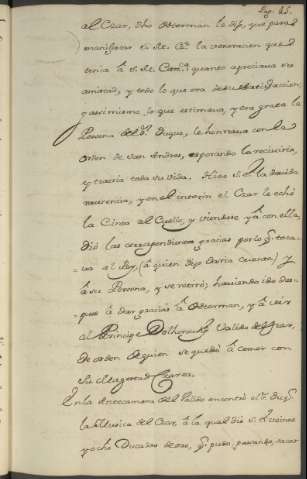 Pag. 25.
al Czar, dho Osterman le dijo, que para
manifestar á S. E. la veneracion que
tenia á S. M. Cath.ca quanto apreciava su
amistad, y todo lo que era de su satisfaccion,
y assimismo lo que estimava, y era grata la
Persona del Duque, le honrrava con la
orden de San Andres, esperando la reciviria,
y traeria toda su vida. Hizo S. E. la devida
reverencia, y en el interin el Czar le echó
la Cinta al Cuello, y viendose yá con ella,
dió las correspondientes gracias por lo q. toca-
va al Rey, (á quien dijo daria cuenta) y
á su Persona, y se retiró; haviendo ido des-
pues á dar gracias á Osterman, y á ver
al Principe Dolhorucky Valido del Czar,
de orden de quien se quedó á comer con
Su Magestad Czarea.
En la Antecamara del Palacio encontró el Duq.
la Musica del Czar, á la qual dió S. E. treinta
y ocho Ducados de oro, q. puso passando, sacar